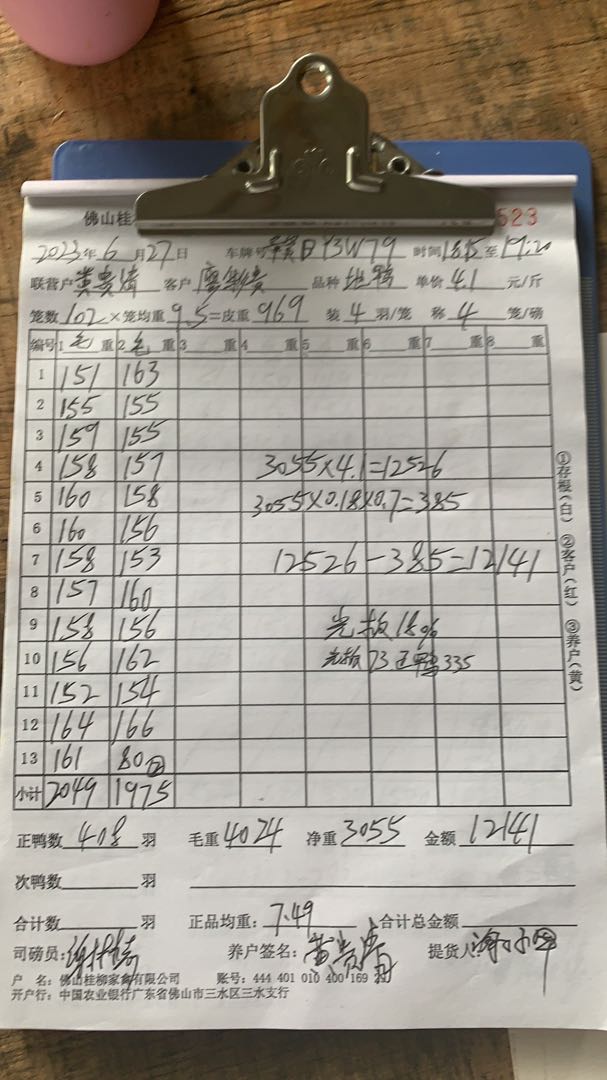 佛山桂 523
2023年6月27日 车牌号 日Y3W79 时间18:15至19:20
联营户黄贵清 客户 品种 地鸭 单价4.1元/斤
笼数102×笼均重9.5=皮重969 装4羽/笼 称4笼/磅
编号 1毛重 2毛重 3重 4重 5重 6重 7重 8重
1 151 163
2 155 155
3 159 155
4 158 157 3055×4.1=12526
5 160 158 3055×0.18×0.7=385
6 160 156
7 158 153 12526-385=12141
8 157 160
9 158 156 光板18%
10 156 162 光板73 正鸭335
11 152 154
12 164 166
13 161 80②
小计 2049 1975
①存根(白) ②客户(红) ③养户(黄)
正鸭数408羽 毛重4024 净重3055 金额12141
次鸭数 羽
合计数 羽 正品均重:7.49 合计总金额
司磅员: 养户签名:黄贵清 提货人
户 名:佛山桂柳家禽有限公司 账号:444 401 010 400 169
开户行:中国农业银行广东省佛山市三水区三水支行